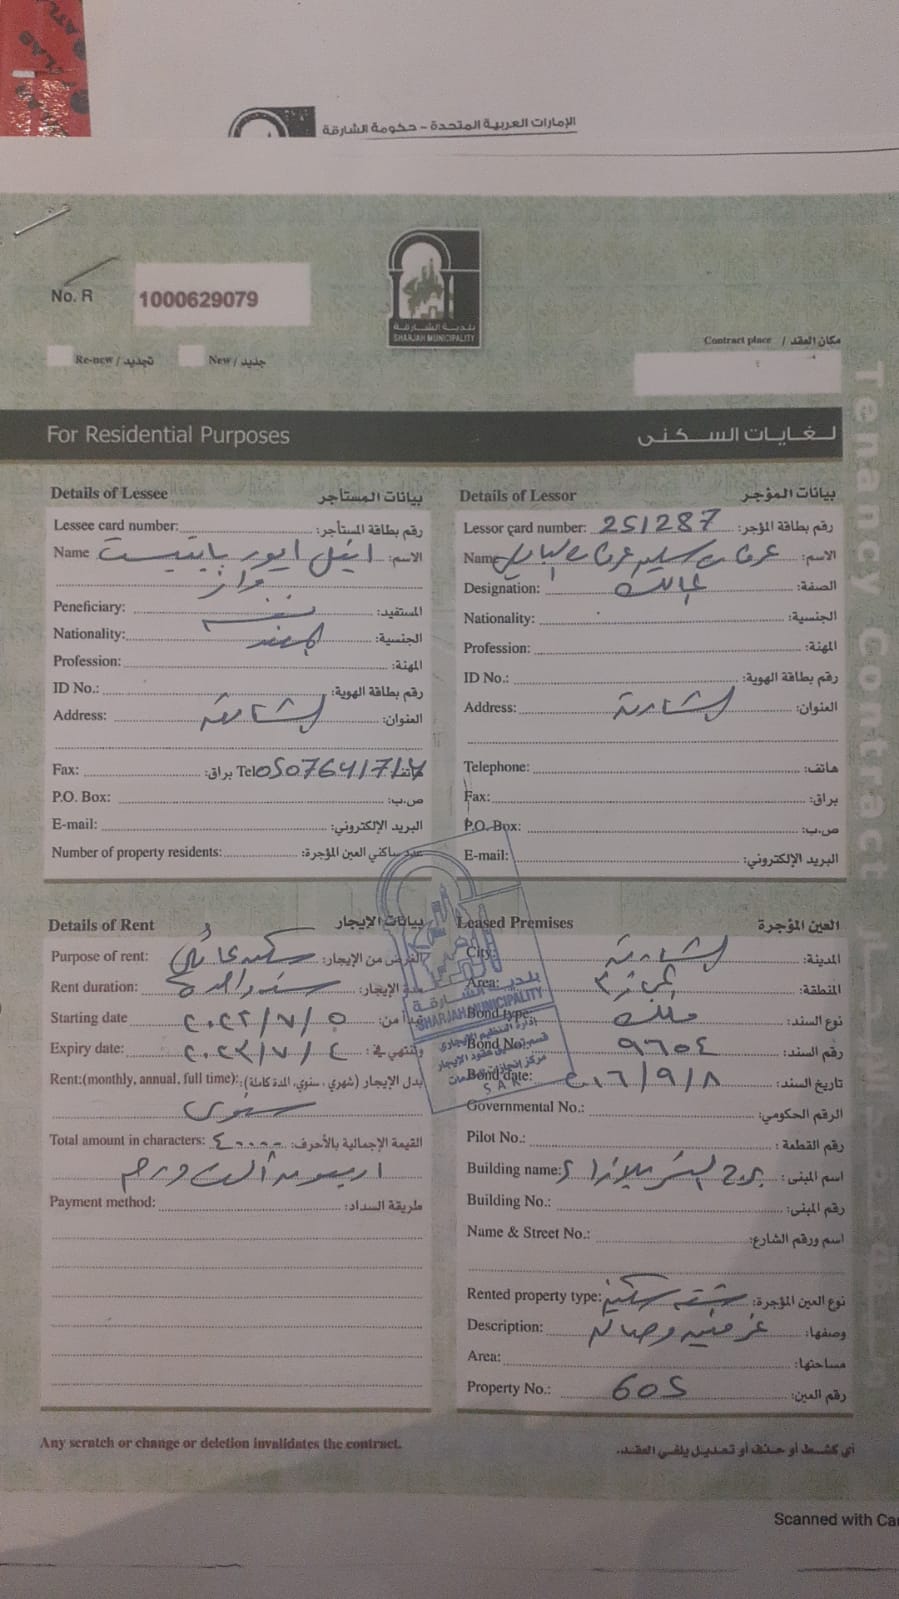 الإمارات العربية المتحدة - حكومة الشارقة
No. R 1000629079
بلدية الشارقة
SHARJAH MUNICIPALITY
Re-new / تجديد New / جديد
Contract place / مكان العقد
For Residential Purposes لغايات السكنى
Tenancy Contract
Details of Lessee بيانات المستأجر
Lessee card number: رقم بطاقة المستأجر:
Name الاسم:
Peneficiary: المستفيد:
Nationality: الجنسية: الهند
Profession: المهنة:
ID No.: رقم بطاقة الهوية:
Address: العنوان: الشارقة
Fax: براق: Tel هاتف:
P.O. Box: ص.ب:
E-mail: البريد الإلكتروني:
Number of property residents: عدد ساكني العين المؤجرة:
Details of Lessor بيانات المؤجر
Lessor card number: 251287 رقم بطاقة المؤجر:
Name الاسم:
Designation: الصفة: مالك
Nationality: الجنسية:
Profession: المهنة:
ID No.: رقم بطاقة الهوية:
Address: العنوان: الشارقة
Telephone: هاتف:
Fax: براق:
P.O. Box: ص.ب:
E-mail: البريد الإلكتروني:
Details of Rent بيانات الإيجار
Purpose of rent: الغرض من الإيجار: سكن عائلي
Rent duration: مدة الإيجار: سنة واحدة
Starting date تبدأ من: ٢٠٢٢/٧/٥
Expiry date: وتنتهي في: ٢٠٢٣/٧/٤
Rent:(monthly, annual, full time): بدل الإيجار (شهري، سنوي، المدة كاملة):
سنوي
Total amount in characters: القيمة الإجمالية بالأحرف: ٤٠٠٠٠
اربعون ألف درهم
Payment method: طريقة السداد:
Leased Premises العين المؤجرة
City: المدينة: الشارقة
Area: المنطقة:
Bond type: نوع السند: ملك
Bond No.: رقم السند: ٩٦٥٤
Bond date: تاريخ السند:
Governmental No.: الرقم الحكومي:
Pilot No.: رقم القطعة:
Building name: اسم المبنى: برج
Building No.: رقم المبنى:
Name & Street No.: اسم ورقم الشارع:
Rented property type: نوع العين المؤجرة: شقة سكنية
Description: وصفها: غرفتين وصالة
Area: مساحتها:
Property No.: رقم العين: 605
بلدية الشارقة
SHARJAH MUNICIPALITY
إدارة التنظيم الإيجاري
Any scratch or change or deletion invalidates the contract. أي كشط أو حذف أو تعديل يلغي العقد.
Scanned with Ca